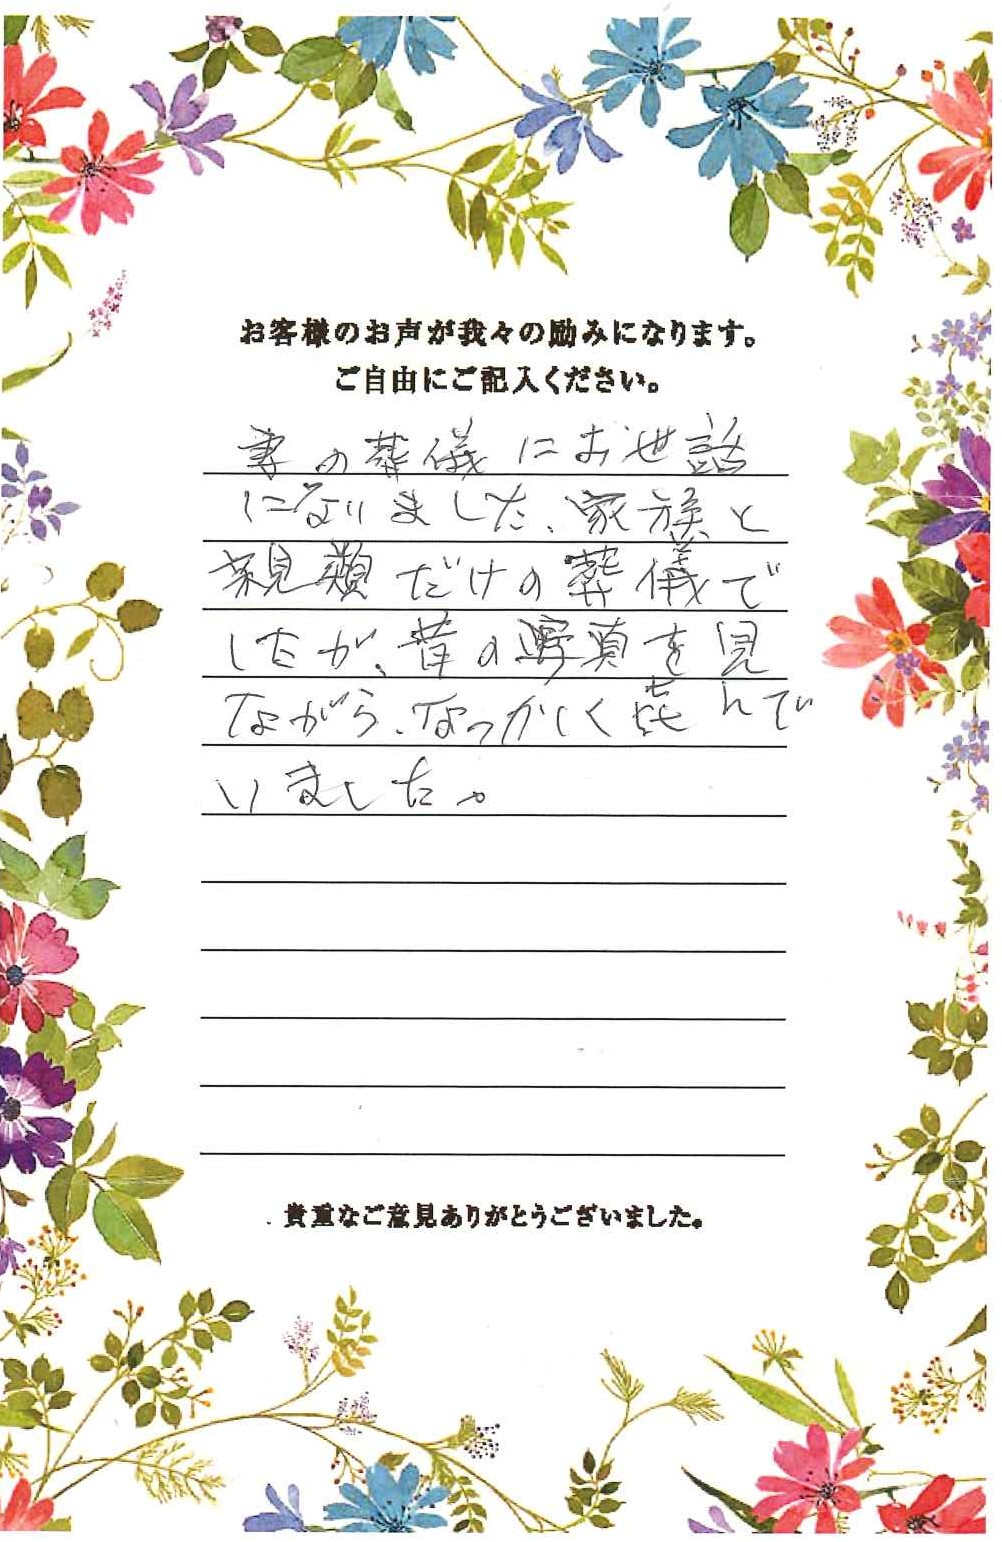 お客様のお声が我々の励みになります。
ご自由にご記入ください。
妻の葬儀にお世話
になりました、家族と
親類だけの葬儀で
したが、昔の写真を見
ながら、なつかしく喜んで
いました。
貴重なご意見ありがとうございました。